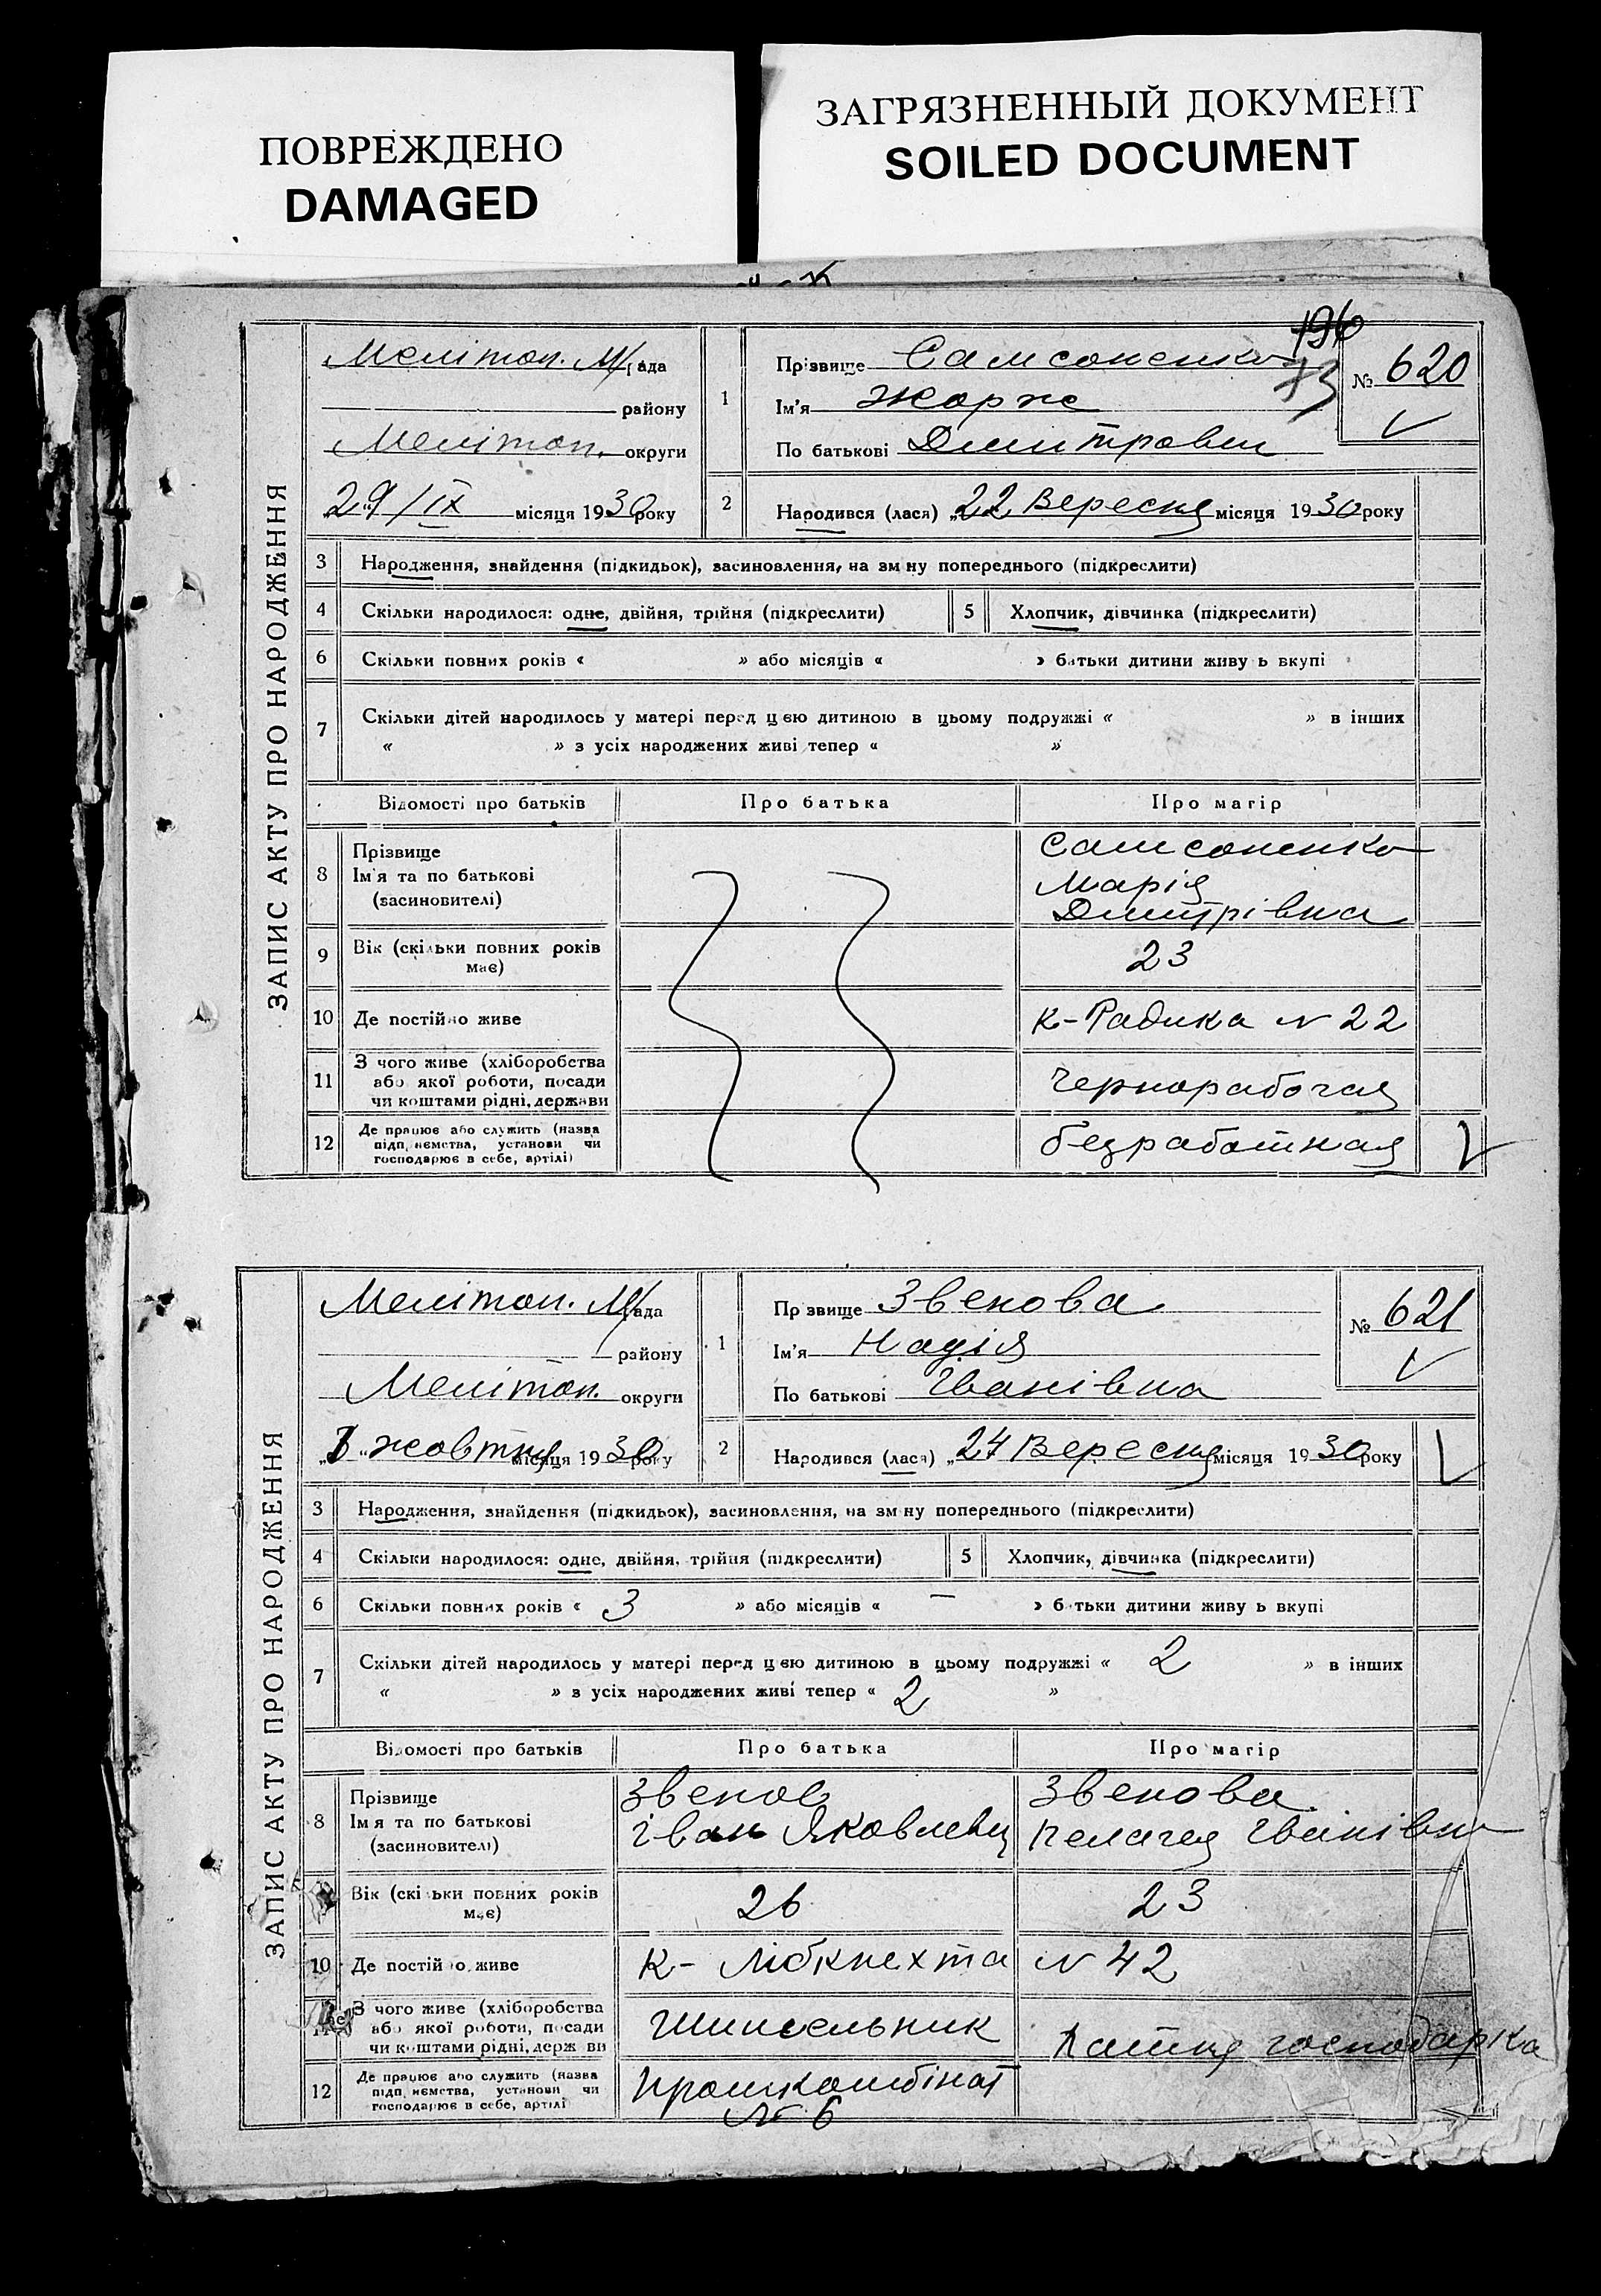 ПОВРЕЖДЕНО
DAMAGED
ЗАГРЯЗНЕННЫЙ ДОКУМЕНТ
SOILED DOCUMENT
ЗАПИС АКТУ ПРО НАРОДЖЕННЯ
Мелітоп. М/рада
району
Мелітоп. округи
"29/IX місяця 1930 року
1
Прізвище Самсоненко
Ім'я Жорж
По батькові Дмитрович
196
№ 620
2
Народився (лася) „22 Вересня місяця 1930 року
3 Народження, знайдення (підкидьок), засиновлення, на зміну попереднього (підкреслити)
4 Скільки народилося: одне, двійня, трійня (підкреслити) 5 Хлопчик, дівчинка (підкреслити)
6 Скільки повних років « » або місяців « » батьки дитини живуть вкупі
7 Скільки дітей народилось у матері перед цією дитиною в цьому подружжі « » в інших
« » з усіх народжених живі тепер « »
Відомості про батьків Про батька Про матір
8 Прізвище Ім'я та по батькові (засиновителі)
Самсоненко
Марія
Дмитрівна
9 Вік (скільки повних років має) 23
10 Де постійно живе К-Радика № 22
11 З чого живе (хліборобства або якої роботи, посади чи коштами рідні, держави Чернорабочая
12 Де працює або служить (назва підприємства, установи чи господарює в себе, артілі) безработная
ЗАПИС АКТУ ПРО НАРОДЖЕННЯ
Мелітоп. М/рада
району
Мелітоп. округи
жовтня місяця 1930 року
1
Прізвище Звенова
Ім'я Надія
По батькові Іванівна
№ 621
2
Народився (лася) „24 Вересня місяця 1930 року
3 Народження, знайдення (підкидьок), засиновлення, на зміну попереднього (підкреслити)
4 Скільки народилося: одне, двійня, трійня (підкреслити) 5 Хлопчик, дівчинка (підкреслити)
6 Скільки повних років « 3 » або місяців « — » батьки дитини живуть вкупі
7 Скільки дітей народилось у матері перед цією дитиною в цьому подружжі « 2 » в інших
« » з усіх народжених живі тепер « 2 »
Відомості про батьків Про батька Про матір
8 Прізвище Ім'я та по батькові (засиновителі)
Звенов Звенова
Іван Яковлевич Пелагея Іванівна
Вік (скільки повних років має) 26 23
10 Де постійно живе К- Лібкнехта № 42
11 З чого живе (хліборобства або якої роботи, посади чи коштами рідні, держави господарка
12 Де працює або служить (назва підприємства, установи чи господарює в себе, артілі Промкомбінат
№ 6